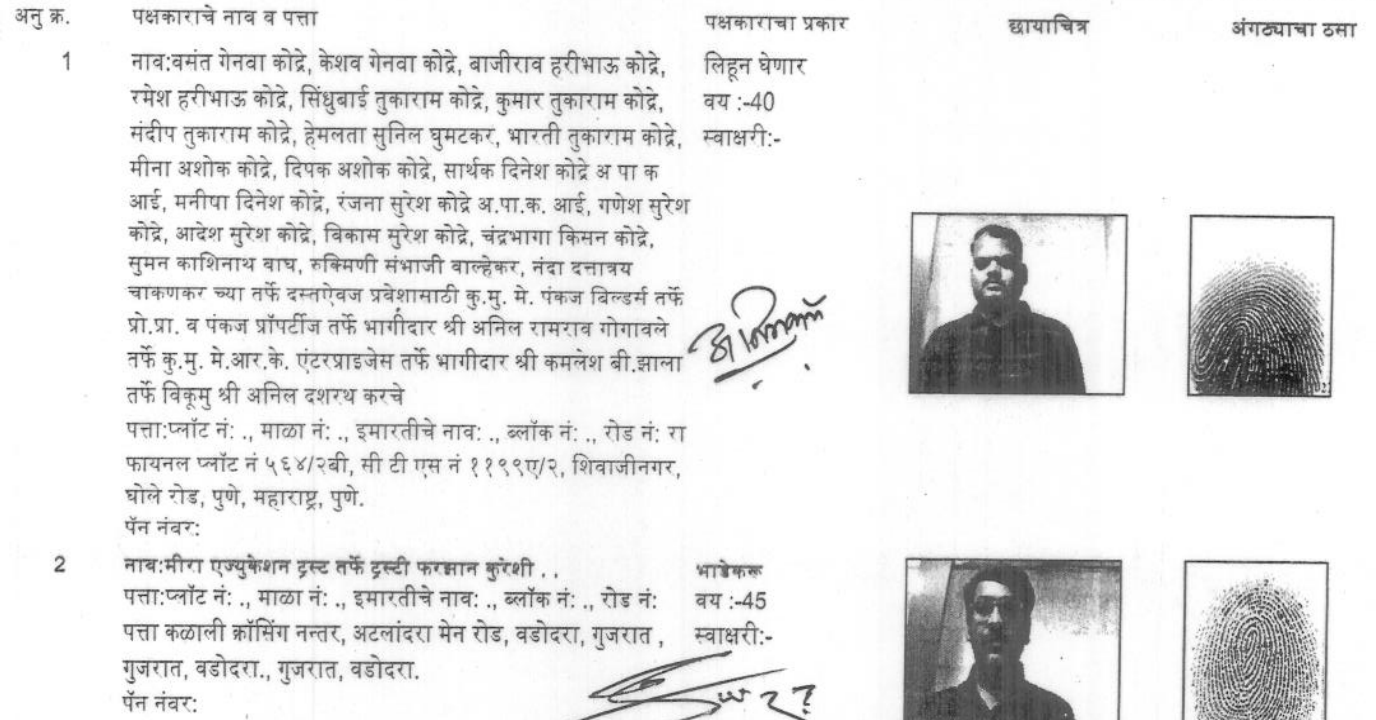 अनु क्र. पक्षकाराचे नाव व पत्ता पक्षकाराचा प्रकार छायाचित्र अंगठ्याचा ठसा
1 नाव:वसंत गेनबा कोद्रे, केशव गेनबा कोद्रे, बाजीराव हरीभाऊ कोद्रे, लिहून घेणार
रमेश हरीभाऊ कोद्रे, सिंधुबाई तुकाराम कोद्रे, कुमार तुकाराम कोद्रे, वय :-40
संदीप तुकाराम कोद्रे, हेमलता सुनिल घुमटकर, भारती तुकाराम कोद्रे, स्वाक्षरी:-
मीना अशोक कोद्रे, दिपक अशोक कोद्रे, सार्थक दिनेश कोद्रे अ पा क
आई, मनीषा दिनेश कोद्रे, रंजना सुरेश कोद्रे अ.पा.क. आई, गणेश सुरेश
कोद्रे, आदेश सुरेश कोद्रे, विकास सुरेश कोद्रे, चंद्रभागा किसन कोद्रे,
सुमन काशिनाथ वाघ, रुक्मिणी संभाजी वाल्हेकर, नंदा दत्तात्रय
चाकणकर च्या तर्फे दस्तऐवज प्रवेशासाठी कु.मु. मे. पंकज बिल्डर्स तर्फे
प्रो.प्रा. व पंकज प्रॉपर्टीज तर्फे भागीदार श्री अनिल रामराव गोगावले
तर्फे कु.मु. मे.आर.के. एंटरप्राइजेस तर्फे भागीदार श्री कमलेश बी.झाला
तर्फे विकूमु श्री अनिल दशरथ करचे
पत्ता:प्लॉट नं: ., माळा नं: ., इमारतीचे नाव: ., ब्लॉक नं: ., रोड नं: रा
फायनल प्लॉट नं ५६४/२बी, सी टी एस नं ११९९ए/२, शिवाजीनगर,
घोले रोड, पुणे, महाराष्ट्र, पुणे.
पॅन नंबर:
2 नाव:मीरा एज्युकेशन ट्रस्ट तर्फे ट्रस्टी फरमान कुरेशी . . भाडेकरू
पत्ता:प्लॉट नं: ., माळा नं: ., इमारतीचे नाव: ., ब्लॉक नं: ., रोड नं: वय :-45
पत्ता कळाली क्रॉसिंग नन्तर, अटलांदरा मेन रोड, वडोदरा, गुजरात , स्वाक्षरी:-
गुजरात, वडोदरा., गुजरात, वडोदरा.
पॅन नंबर: